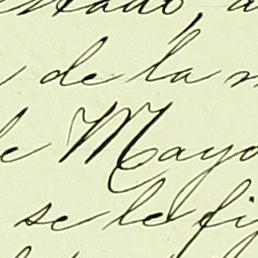 stado, a
de la m
de Mayo
se le fi